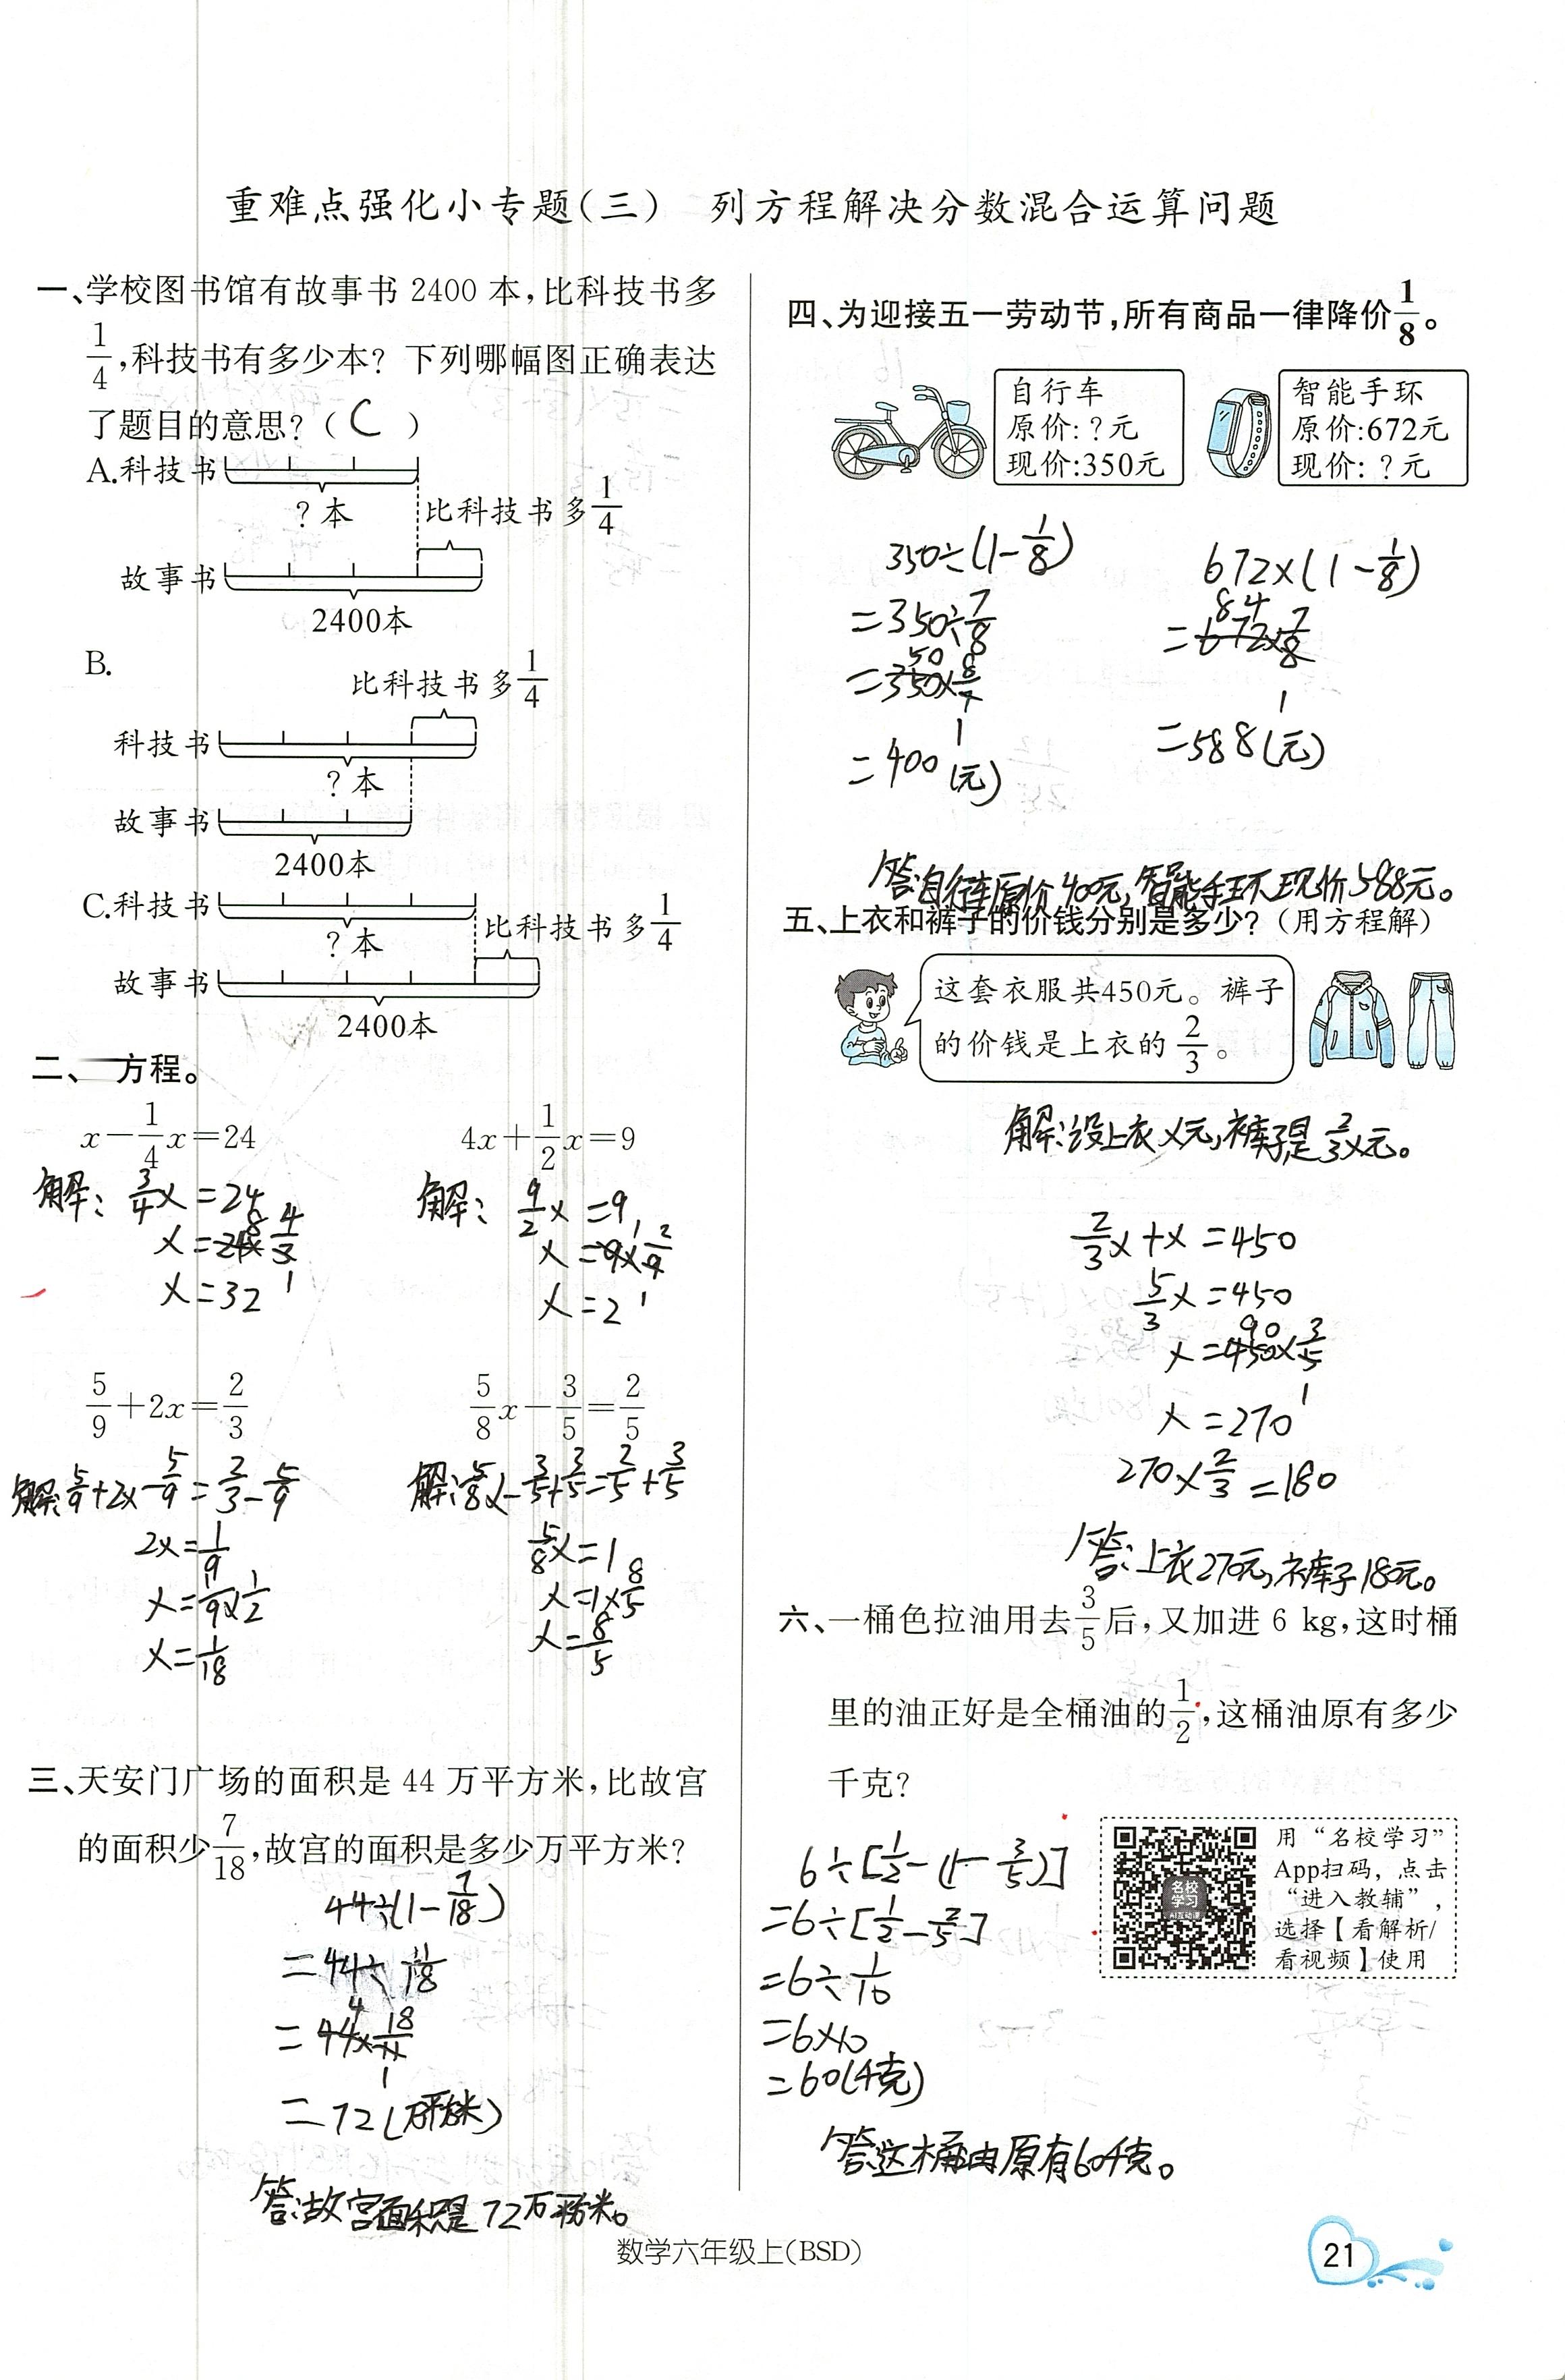 重难点强化小专题(三) 列方程解决分数混合运算问题
一、学校图书馆有故事书 2400 本,比科技书多
1/4,科技书有多少本? 下列哪幅图正确表达
了题目的意思?( C )
A.科技书
? 本
比科技书多1/4
故事书
2400本
B.
比科技书多1/4
科技书
? 本
故事书
2400本
C.科技书
? 本
比科技书多1/4
故事书
2400本
二、 方程。
x-1/4x=24
解: 3/4x=24
x=24×4/3
8
1
x=32
4x+1/2x=9
解: 9/2x=9
x=9×2/9
1
1
x=2
5/9+2x=2/3
解:5/9+2x-5/9=2/3-5/9
2x=1/9
x=1/9×1/2
x=1/18
5/8x-3/5=2/5
解:5/8x-3/5+3/5=2/5+3/5
5/8x=1
x=1×8/5
x=8/5
三、天安门广场的面积是 44 万平方米,比故宫
的面积少7/18,故宫的面积是多少万平方米?
44÷(1-7/18)
=44÷11/18
4
=44×18/11
1
=72(万平方米)
答:故宫面积是72万平方米。
四、为迎接五一劳动节,所有商品一律降价1/8。
自行车
原价:?元
现价:350元
智能手环
原价:672元
现价:?元
350÷(1-1/8)
=350÷7/8
50
=350×8/7
1
=400(元)
672×(1-1/8)
84
=672×7/8
1
=588(元)
答:自行车原价400元,智能手环现价588元。
五、上衣和裤子的价钱分别是多少?(用方程解)
这套衣服共450元。裤子
的价钱是上衣的2/3。
解:设上衣x元,裤子是2/3x元。
2/3x+x=450
5/3x=450
90
x=450×3/5
1
x=270
270×2/3=180
答:上衣270元,裤子180元。
六、一桶色拉油用去3/5后,又加进 6 kg,这时桶
里的油正好是全桶油的1/2,这桶油原有多少
千克?
6÷[1/2-(1-3/5)]
=6÷[1/2-2/5]
=6÷1/10
=6×10
=60(千克)
答:这桶油原有60千克。
用“名校学习”
App扫码,点击
“进入教辅”,
选择【看解析/
看视频】使用
名校
学习
AI互动课
数学六年级上(BSD)
21